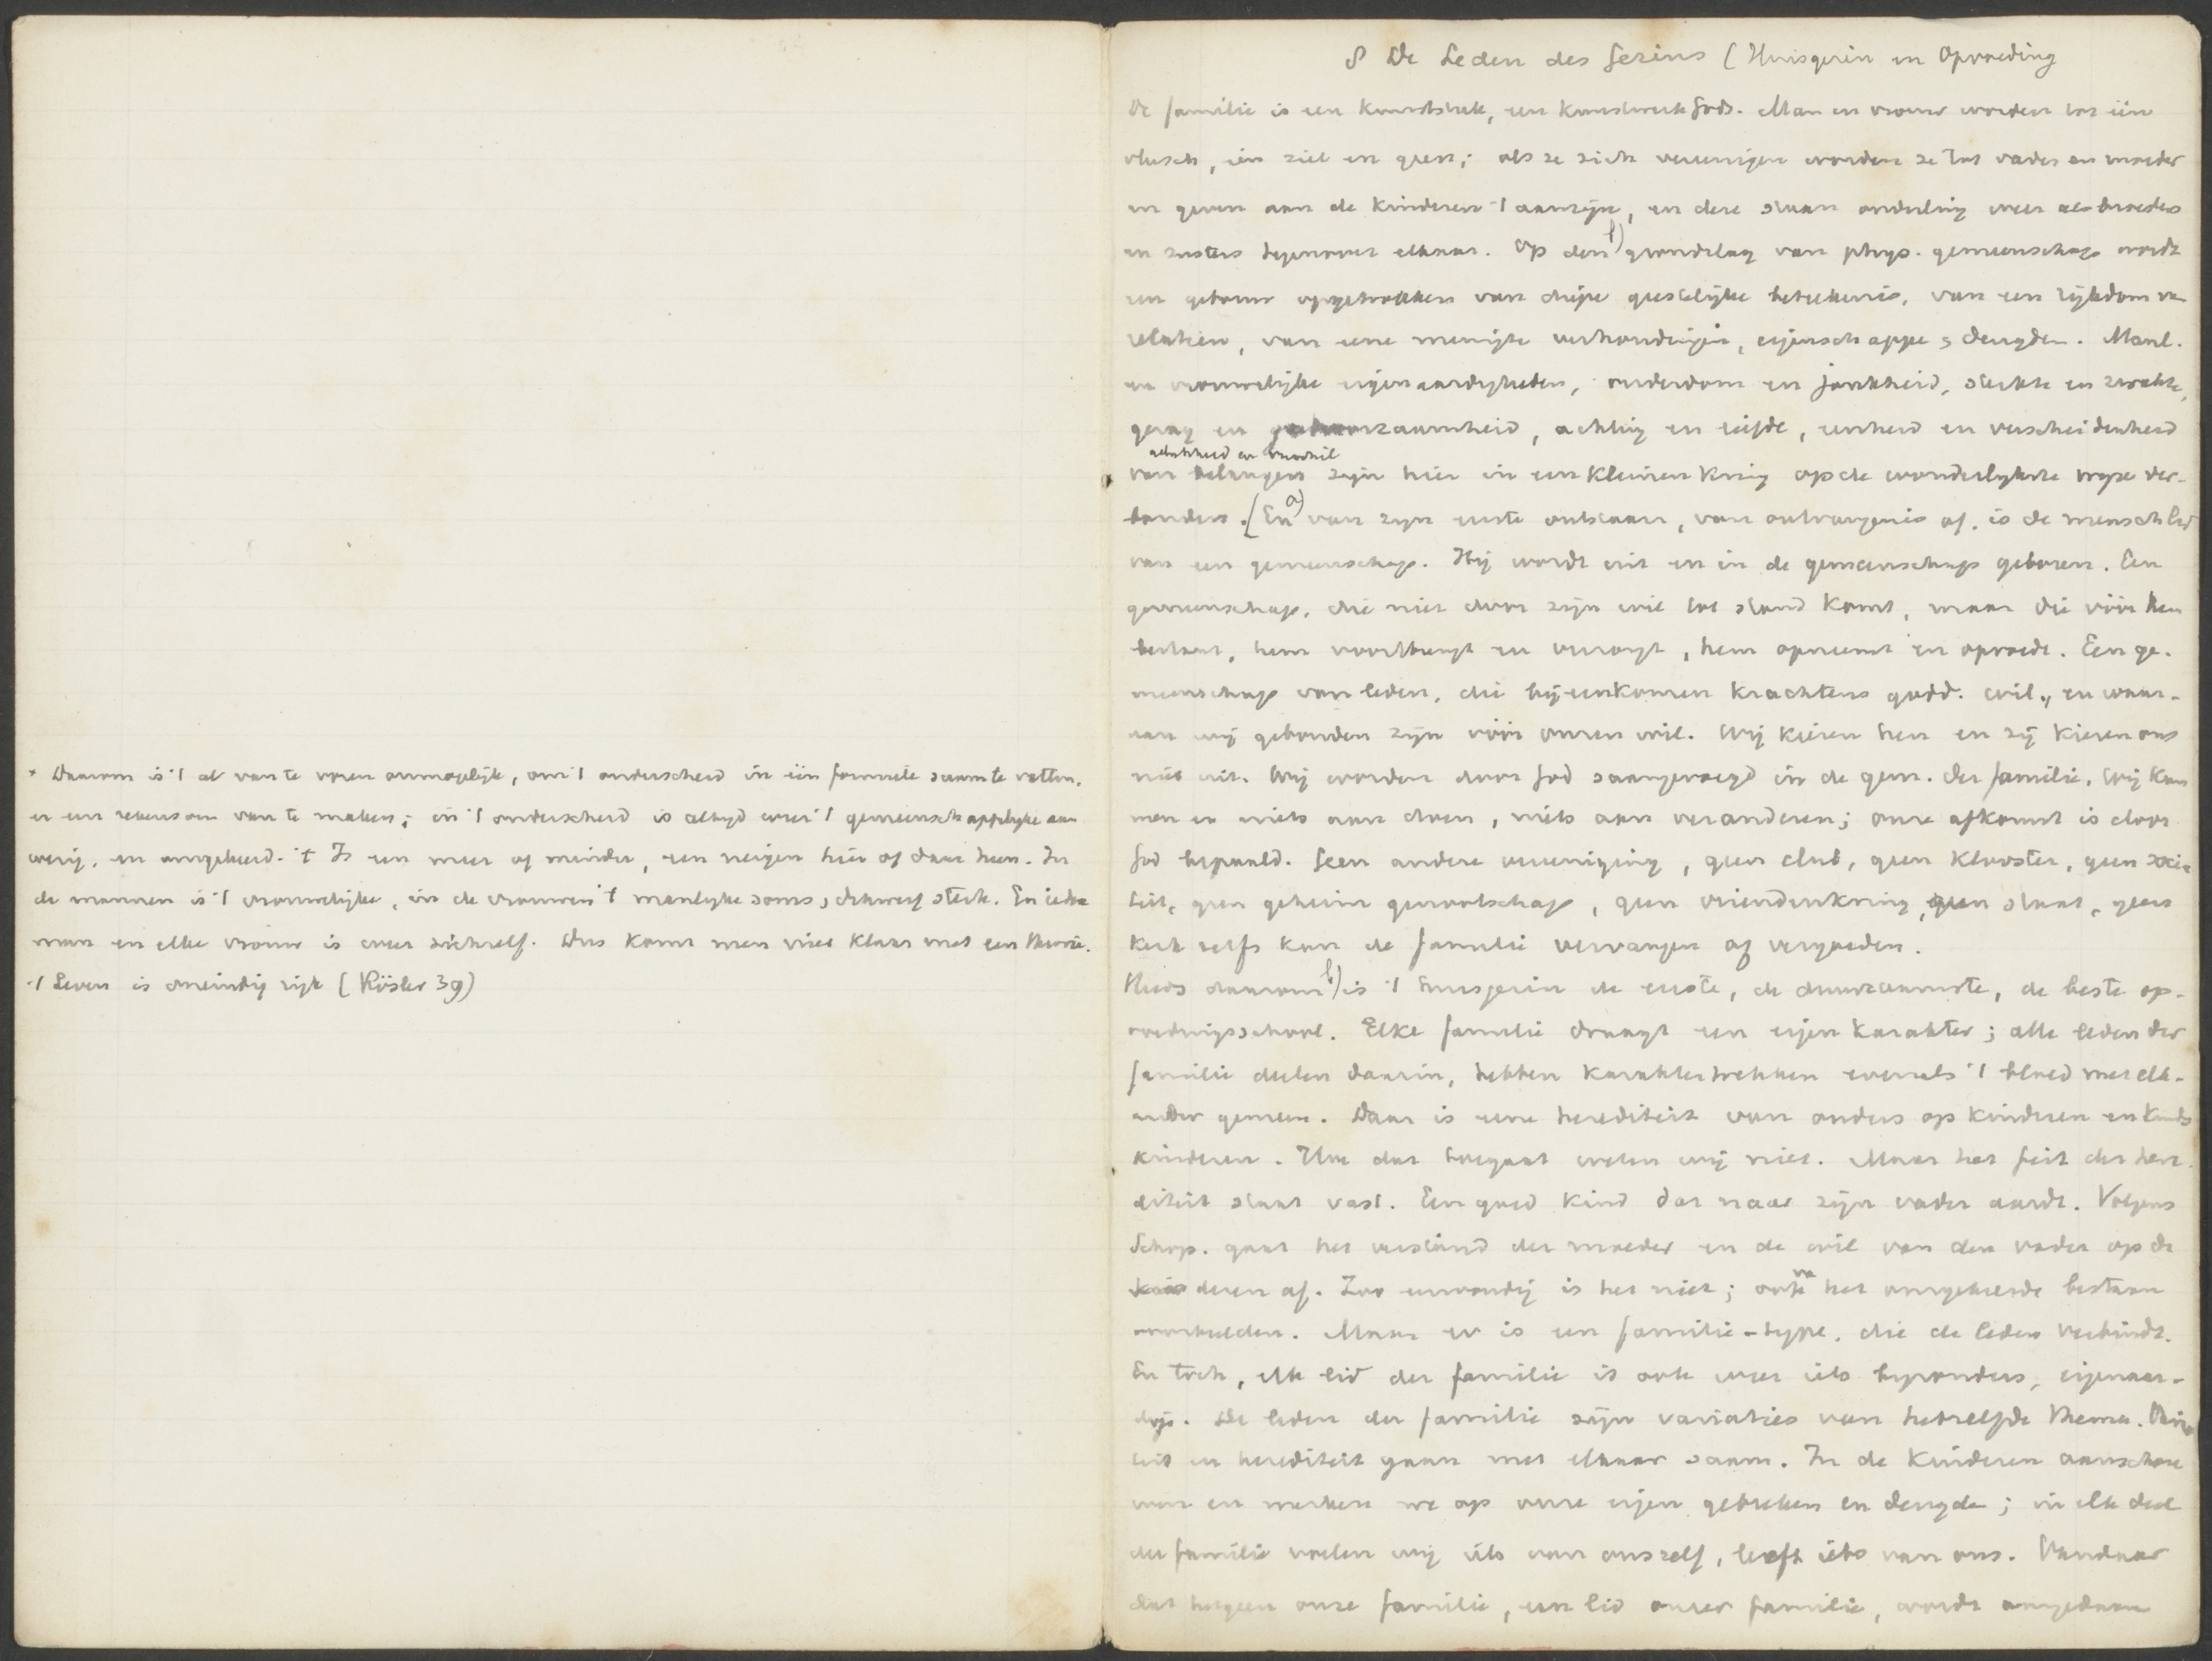 * Daarom is 't al van te voren onmogelijk, om 't onderscheid in één formule saam te vatten,
er een rekensom van te maken; in 't onderscheid is altijd weer 't gemeenschappelijke aan
wezig, en omgekeerd. 't Is een meer of minder, een neigen hier of daar heen. In
de mannen is 't vrouwelijke, in de vrouwen 't manlyke soms, dikwerf sterk. En iedere
man en elke vrouw is weer zichzelf. Dus komt men niet klaar met een theorie.
't Leven is oneindig rijk (Rösler 39)
§ De Leden des Gezins (Huisgezin en Opvoeding
De familie is een kunststuk, een kunstwerk Gods. Man en vrouw worden tot één
vleesch, één ziel en geest; als ze zich vereenigen worden ze tot vader en moeder
en geven aan de kinderen 't aanzijn, en deze staan onderling weer als broeders
en zusters tegenover elkaar. Op den b) grondslag van phys. gemeenschap wordt
een gebouw opgetrokken van diepe geestelijke beteekenis, van een rijkdom van
relatien, van eene menigte verhoudingen, eigenschappen, deugden. Manl.
en vrouwelijke eigenaardigheden, ouderdom en jonkheid, sterkte en zwakte,
gezag en gehoorzaamheid, achting en liefde, eenheid en verscheidenheid
gelijkheid en verschil
van belangen zijn hier in een kleinen kring op de wonderlijkste wijze ver-
bonden. [En a) van zijn eerste ontstaan, van ontvangenis af, is de mensch lid
van een gemeenschap. Hij wordt uit en in de gemeenschap geboren. Een
gemeenschap, die niet door zijn wil tot stand komt, maar die vóór hem
bestaat, hem voortbrengt en verzorgt, hem opneemt en opvoedt. Een ge-
meenschap van leden, die bijeenkomen krachtens godd. wil, en waar-
aan wij gebonden zijn vóór onzen wil. Wij kiezen hen en zij kiezen ons
niet uit. Wij worden door God saamgevoegd in de gem. der familie. Wij kun
nen er niets aan doen, niets aan veranderen; onze afkomst is door
God bepaald. Geen andere vereeniging, geen club, geen klooster, geen socie
teit, geen geheim genootschap, geen vriendenkring, geen staat, geen
kerk zelfs kan de familie vervangen of vergoeden.
Reeds daarom b) is 't huisgezin de eerste, de duurzaamste, de beste op-
voedingsschool. Elke familie draagt een eigen karakter; alle leden der
familie deelen daarin, hebben karaktertrekken evenals 't bloed met elk-
ander gemeen. Daar is eene herediteit van ouders op kinderen en kinds
kinderen. Hoe dat toegaat weten wij niet. Maar het feit der here
diteit staat vast. Een goed kind dat naar zijn vader aardt. Volgens
Schop. gaat het verstand der moeder en de wil van den vader op de
kinderen af. Zoo eenvoudig is het niet; ook van het omgekeerde bestaan
voorbeelden. Maar er is een familie-type, die de leden verbindt.
En toch, elk lid der familie is ook weer iets byzonders, eigenaar-
digs. De leden der familie zijn variaties van hetzelfde thema. Varia
teit en herediteit gaan met elkaar saam. In de kinderen aanschou
wen en merken we op onze eigen gebreken en deugden; in elk deel
der familie voelen wij iets van onszelf, leeft iets van ons. Vandaar
dat hetgeen onze familie, een lid onzer familie, wordt aangedaan